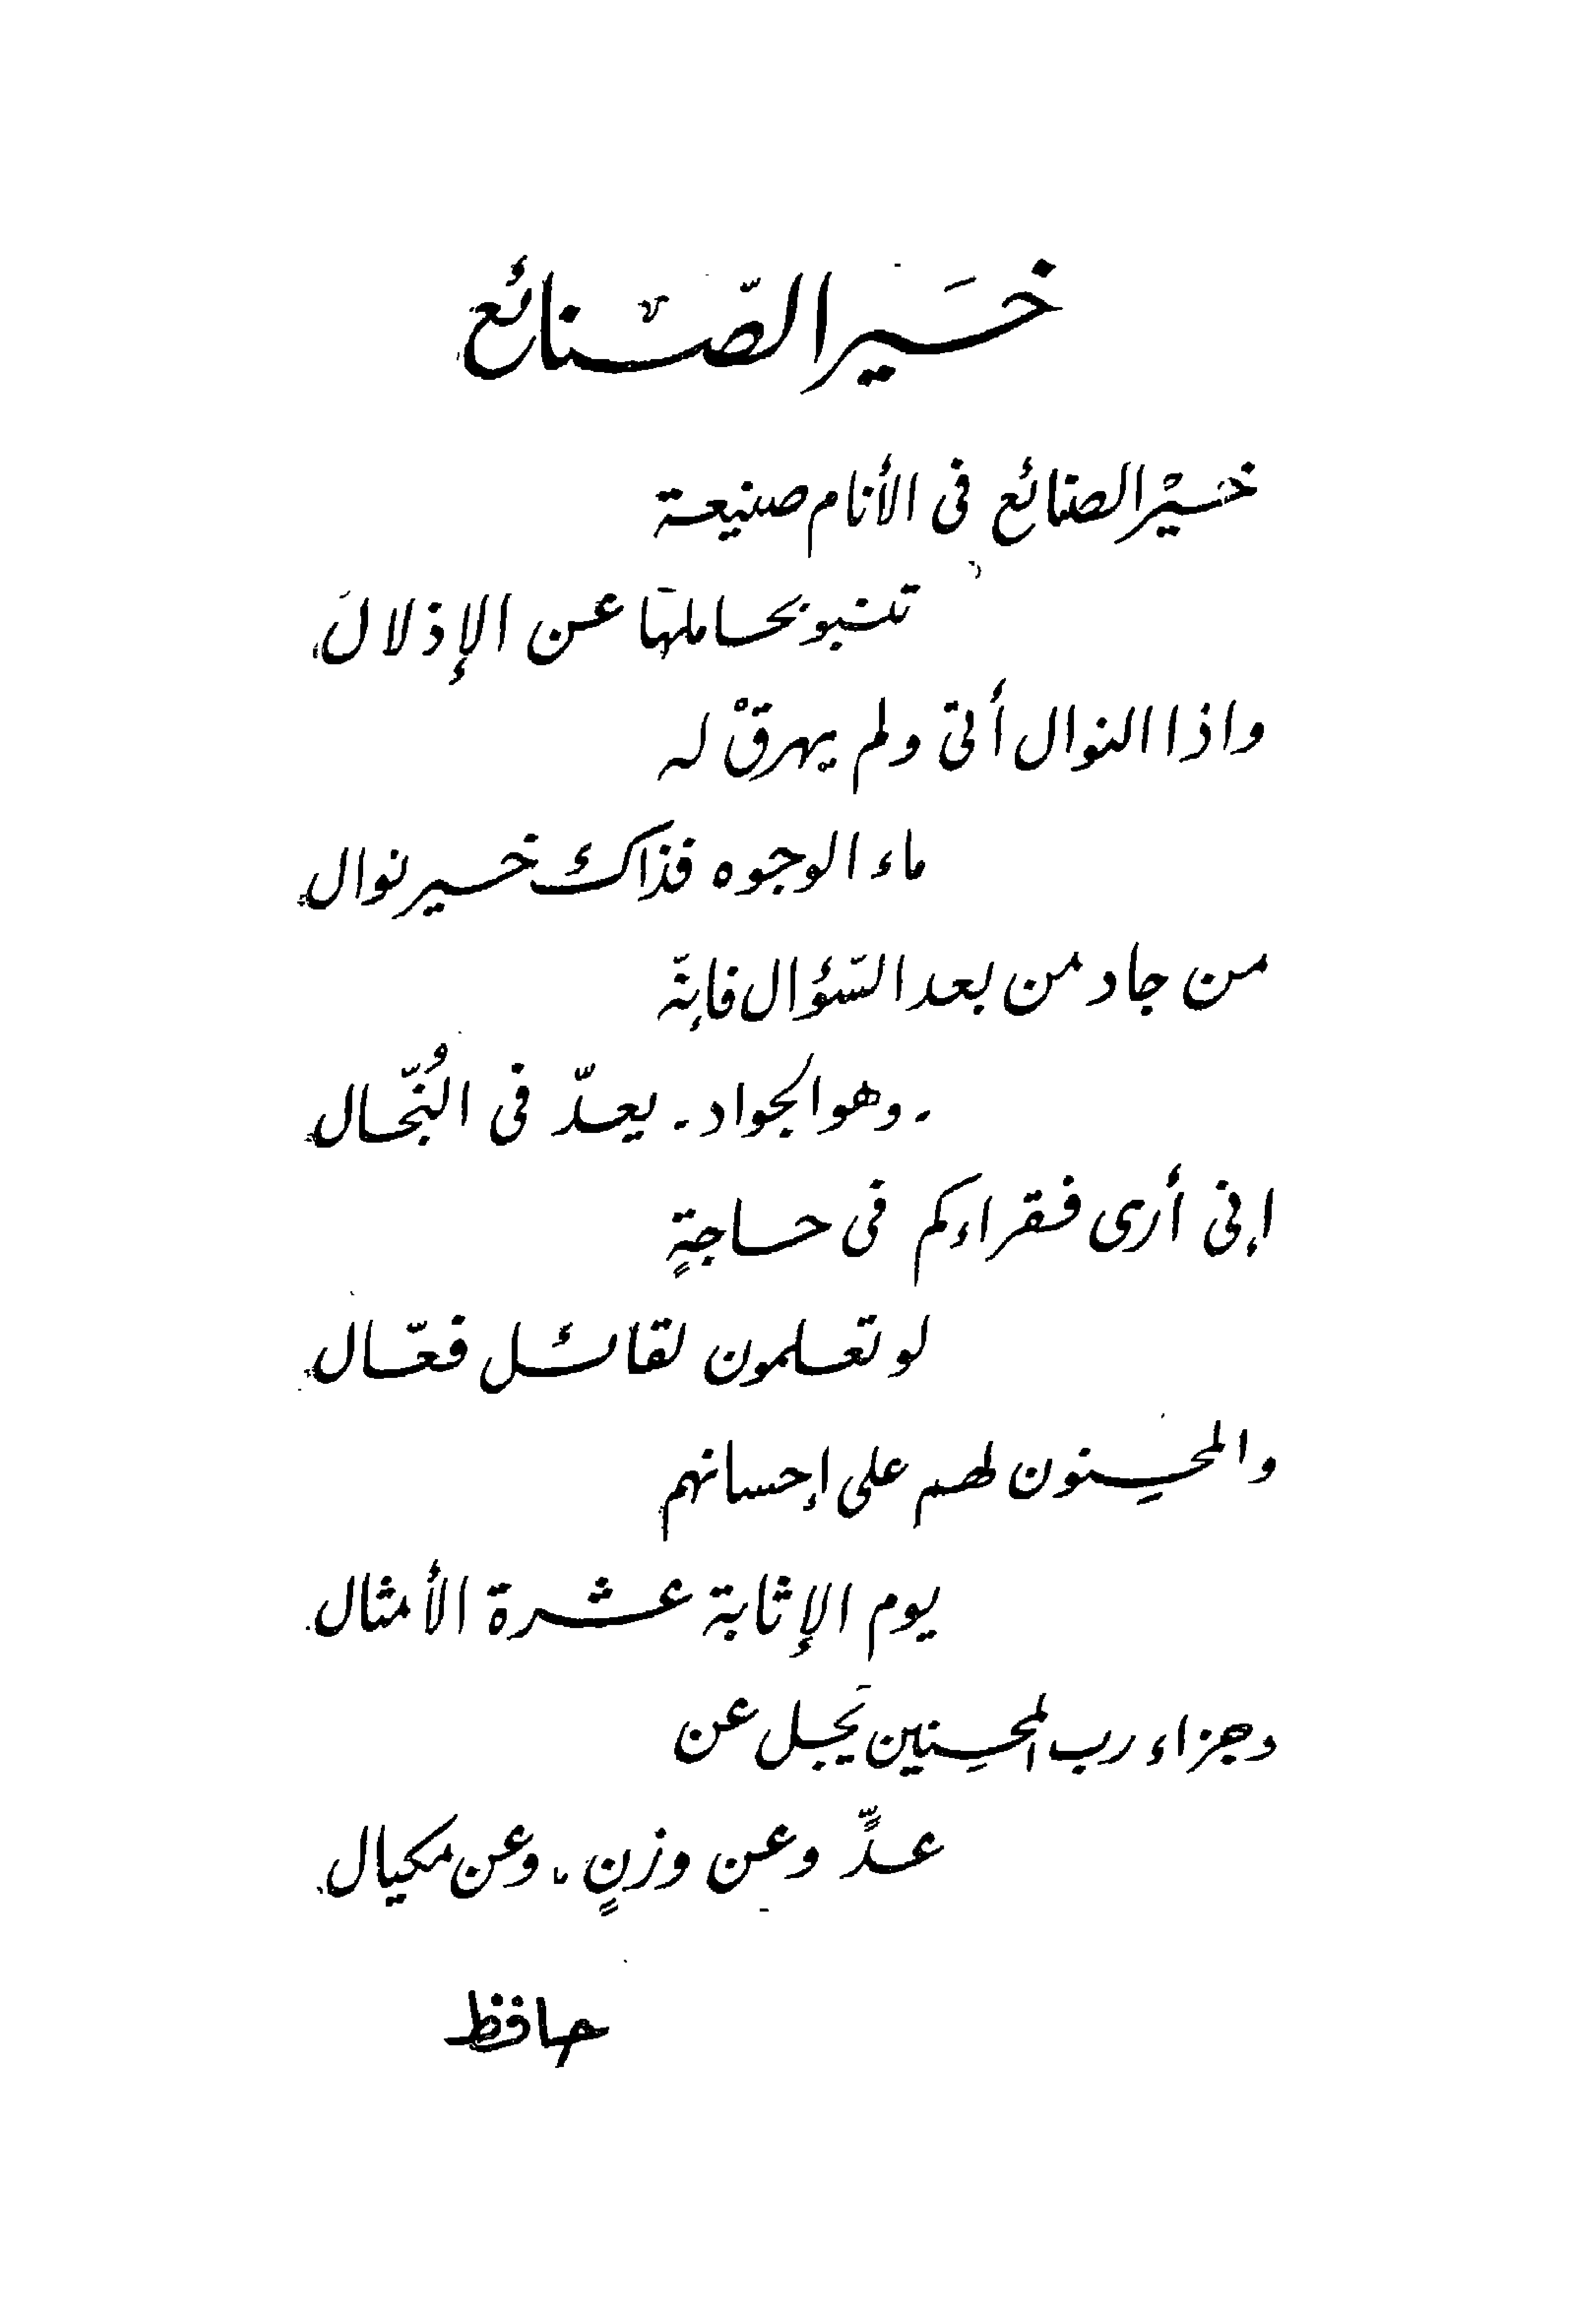 خَير الصّنائع
خَيْر الصنائع فى الأنام صنيعة
تنبو بحاملها عن الإذلال
واذا النوال أتى ولم يهرقْ له
ماء الوجوه فذاك خير نوال
من جاد من بعد السّؤال فإنّه
- وهو الجواد - يعدّ فى البُخّال
إنى أرى فقراءكم فى حاجةٍ
لو تعلمون لقائل فعّال
والمحسِنون لهم على إحسانهم
يوم الإثابة عشرة الأمثال
وجزاء رب المحسِنين يَجل عن
عدٍّ وعن وزنٍ، وعن مكيال
حافظ